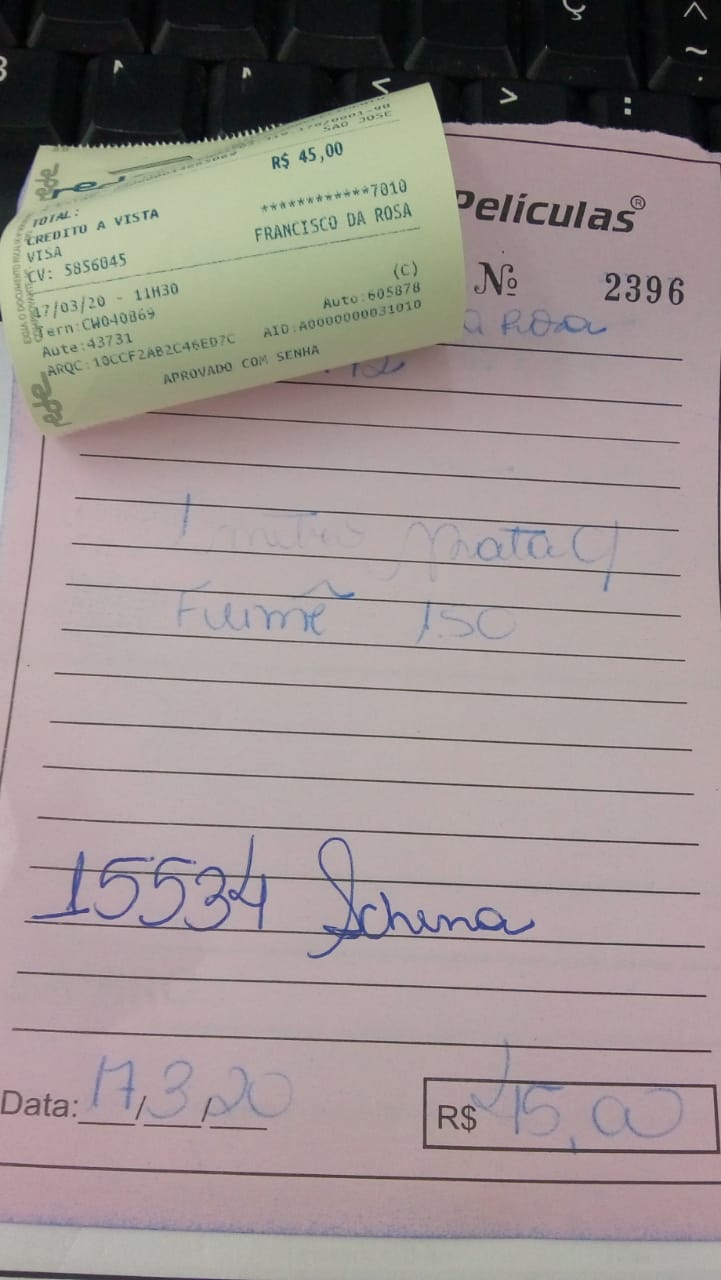 SAO JOSE
R$ 45,00
TOTAL:
CREDITO A VISTA
VISA
************7010
CV: 5856045
FRANCISCO DA ROSA
17/03/20 - 11H30
(C)
Term:CW040869
Auto:605878
Aute:43731
AID:A0000000031010
ARQC:10CCF2AB2C46ED7C
APROVADO COM SENHA
rede
rede
Películas®
Nº 2396
a Rosa
1 metro Prata C/
Fumê 1.50
15534 Schena
Data: 17/3/20
R$ 45,00